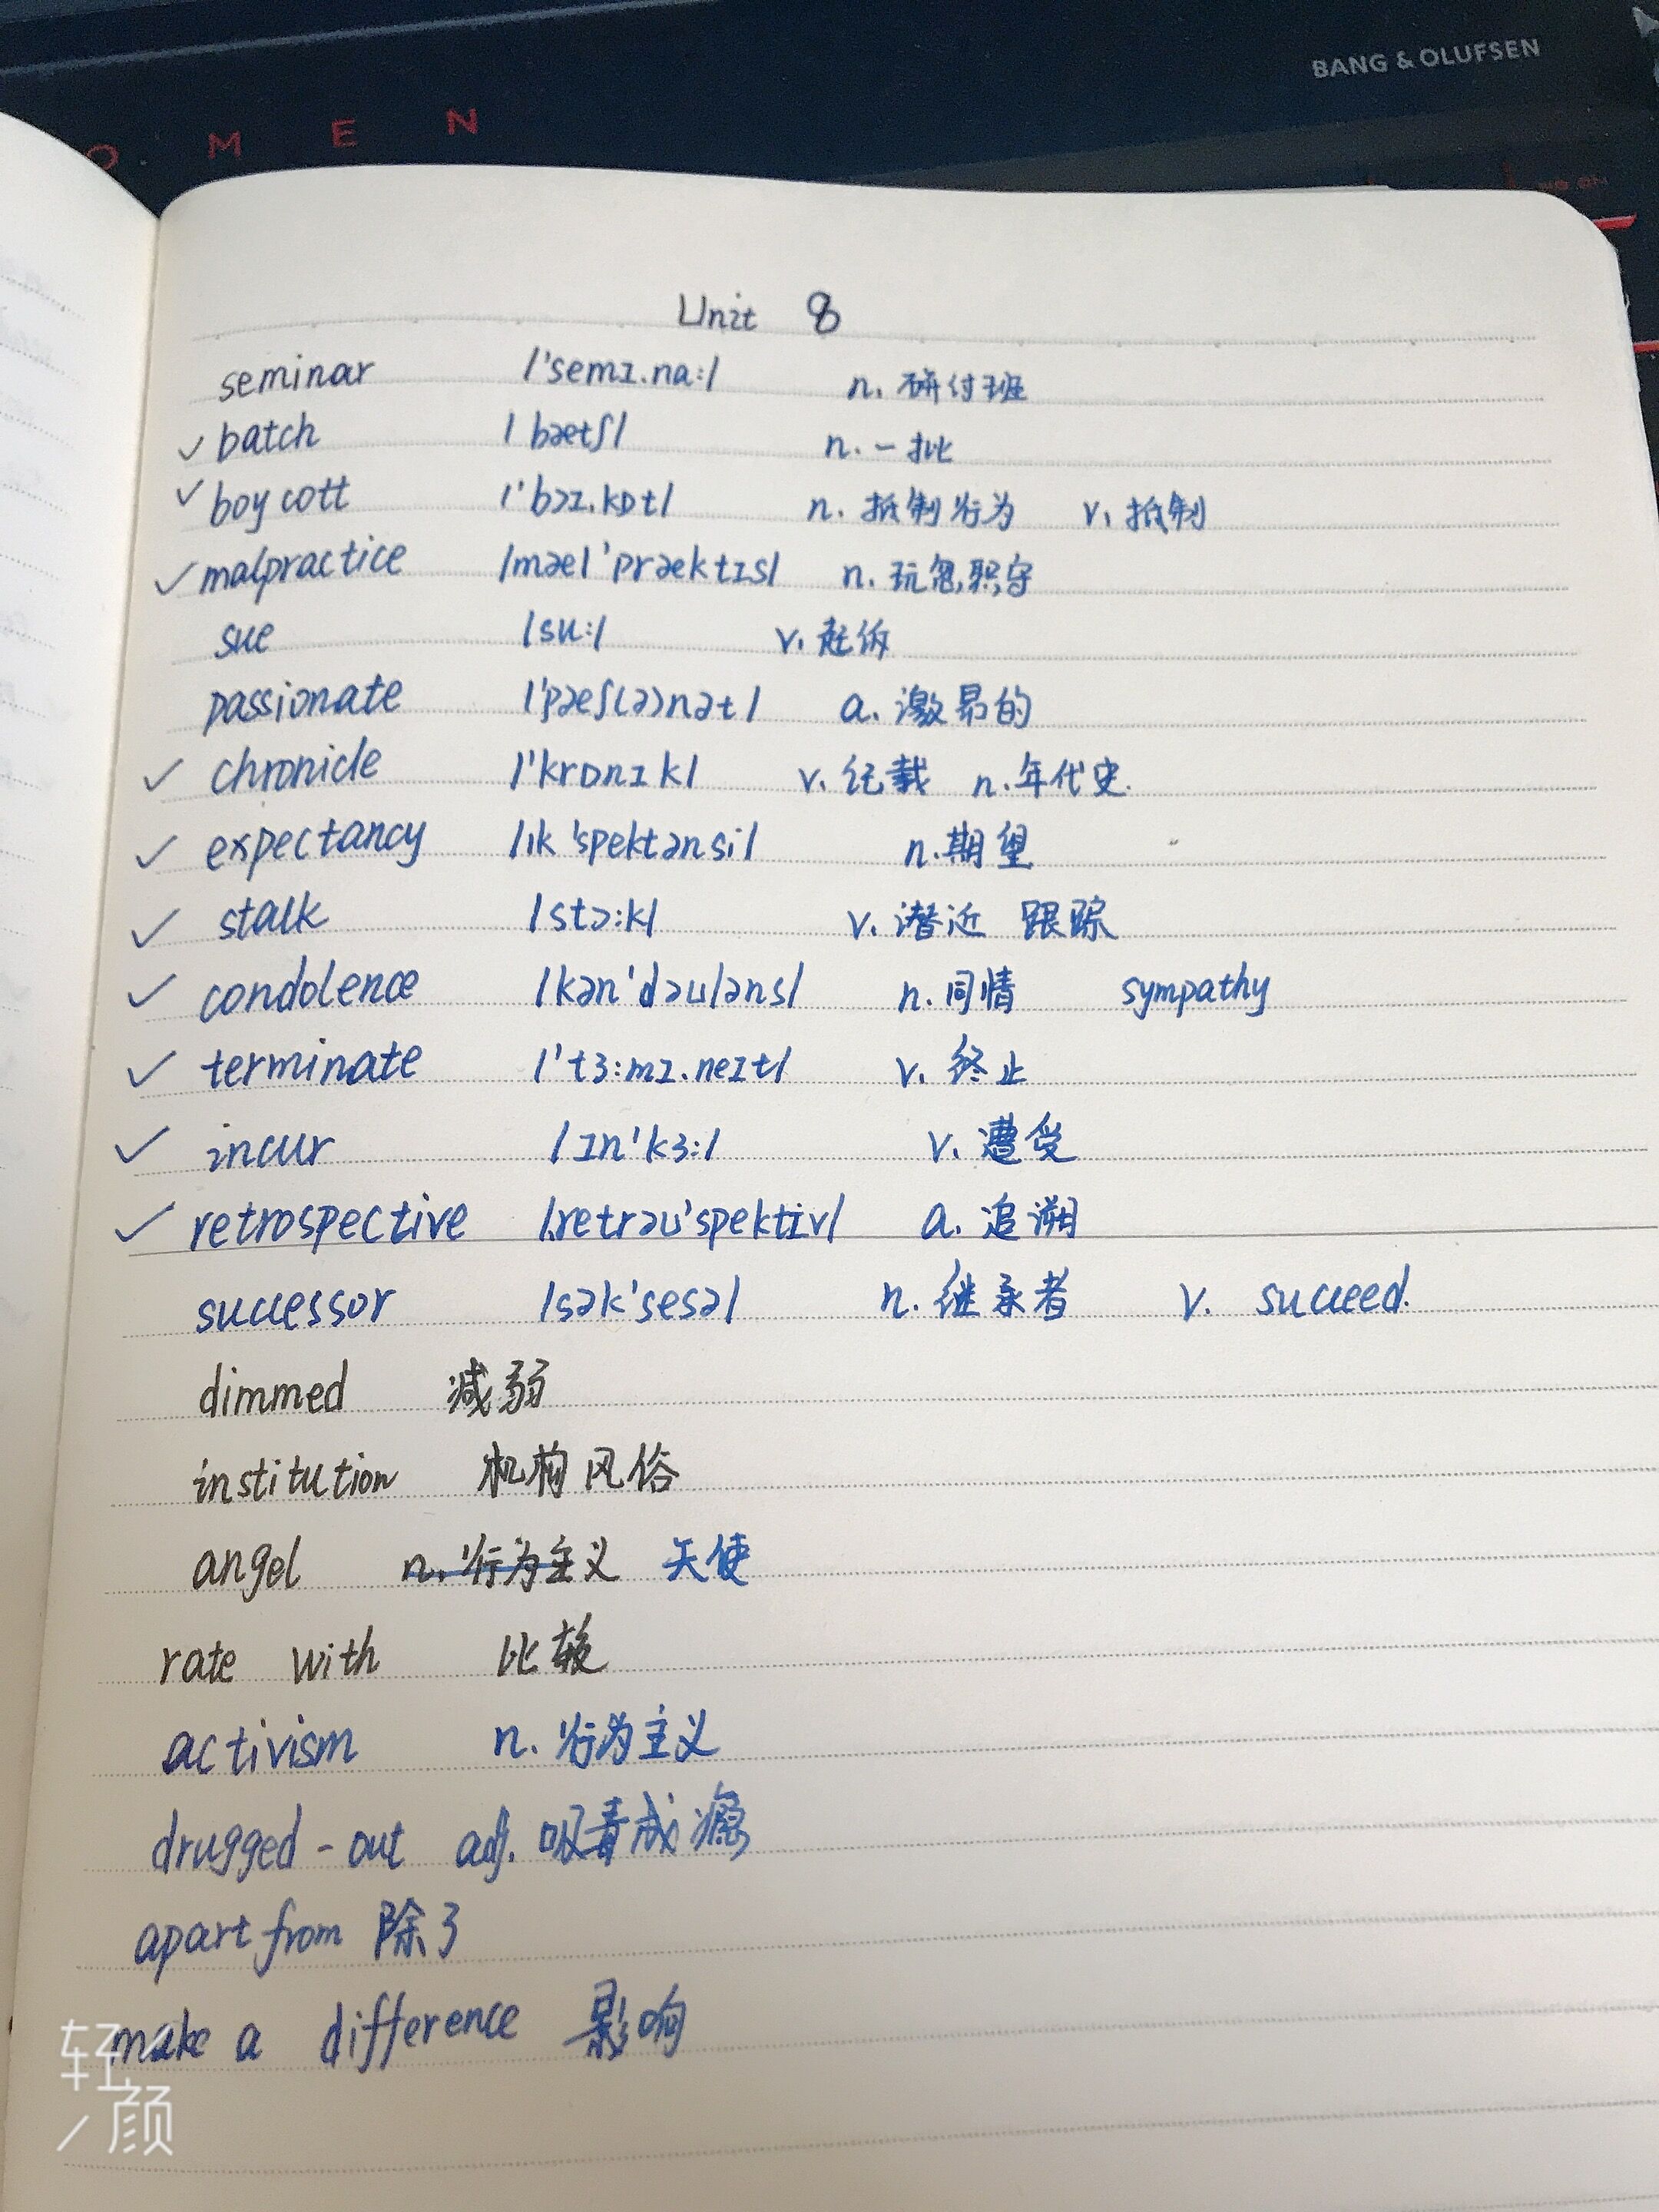 BANG & OLUFSEN
O M E N
Unit 8
seminar /'semɪ.na:/ n. 研讨班
✓ batch /bætʃ/ n. 一批
✓ boycott /'bɔɪ.kɒt/ n. 抵制行为 v. 抵制
✓ malpractice /mæl'præktɪs/ n. 玩忽职守
sue /su:/ v. 起诉
passionate /'pæʃ(ə)nət/ a. 激昂的
✓ chronicle /'krɒnɪkl/ v. 纪载 n. 年代史.
✓ expectancy /ɪk'spektənsi/ n. 期望
✓ stalk /stɔ:k/ v. 潜近 跟踪
✓ condolence /kən'dəuləns/ n. 同情 sympathy
✓ terminate /'tɜ:mɪ.neɪt/ v. 终止
✓ incur /ɪn'kɜ:/ v. 遭受
✓ retrospective /ˌretrəu'spektɪv/ a. 追溯
successor /sək'sesə/ n. 继承者 v. succeed.
dimmed 减弱
institution 机构 风俗
angel n. 行为主义 天使
rate with 比较
activism n. 行为主义
drugged-out adj. 吸毒成瘾
apart from 除了
make a difference 影响
轻
颜